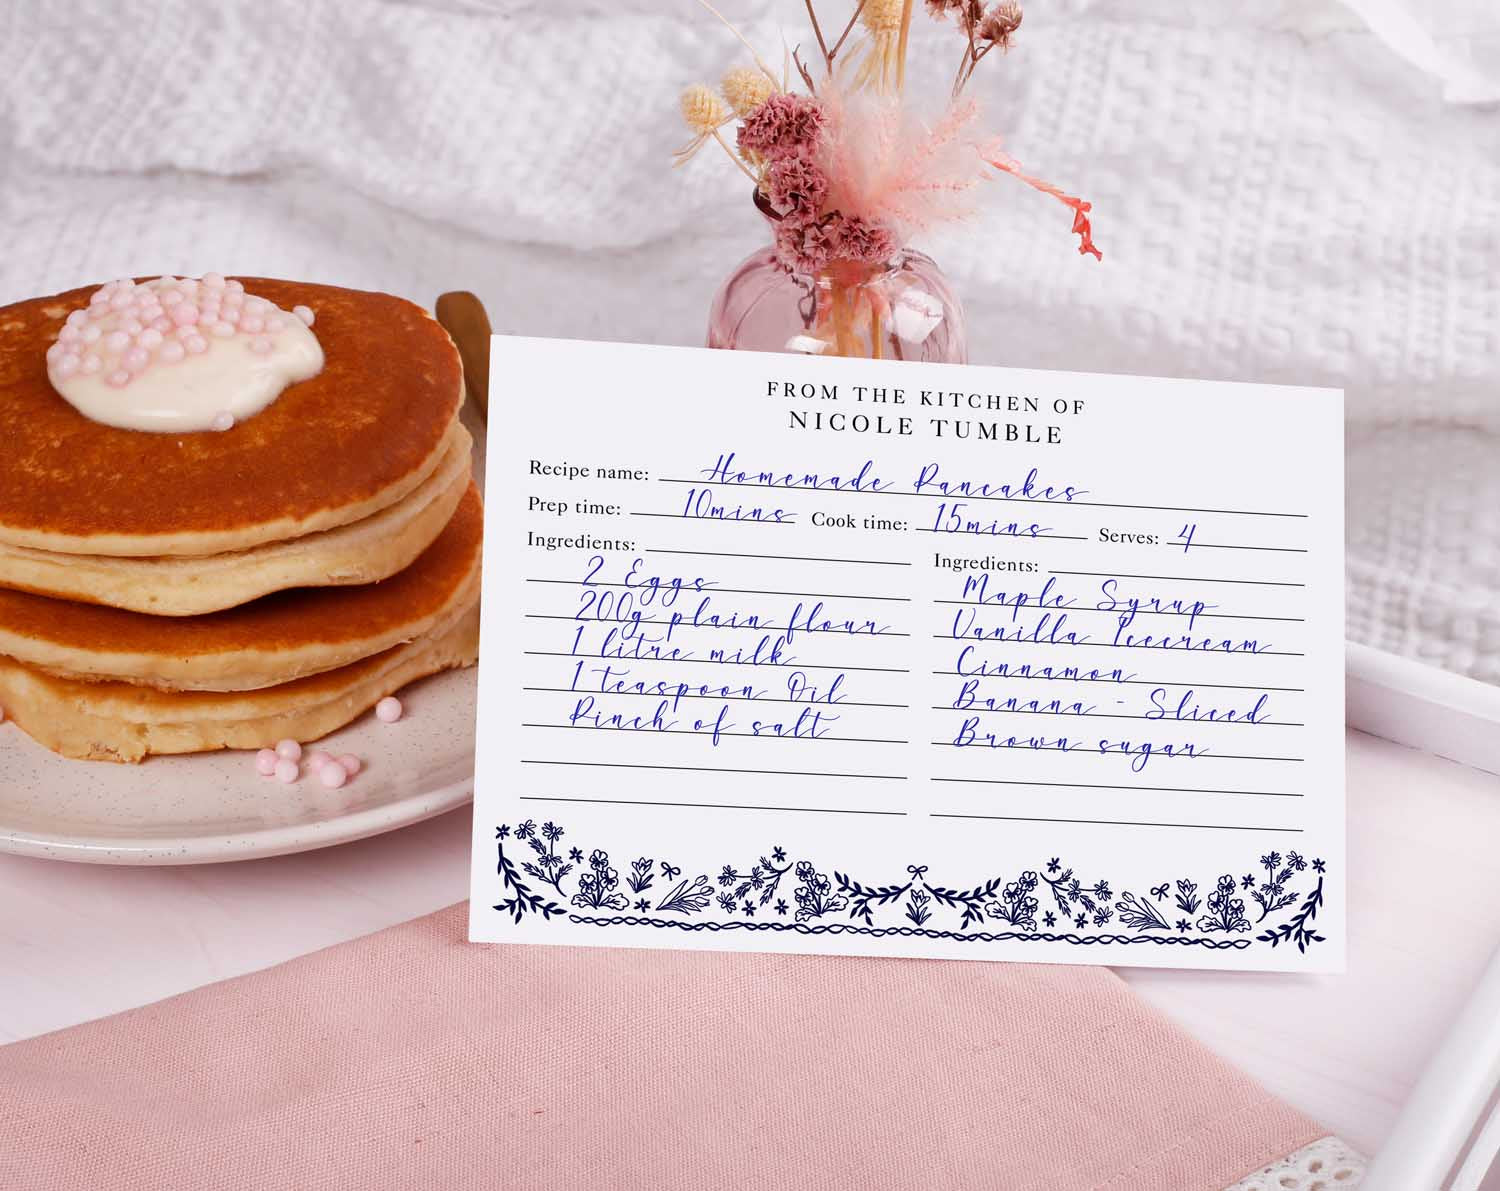 FROM THE KITCHEN OF
NICOLE TUMBLE
Recipe name: Homemade Pancakes
Prep time: 10mins Cook time: 15mins Serves: 4
Ingredients:
2 Eggs
200g plain flour
1 litre milk
1 teaspoon Oil
Pinch of salt
Ingredients:
Maple Syrup
Vanilla Icecream
Cinnamon
Banana - Sliced
Brown sugar